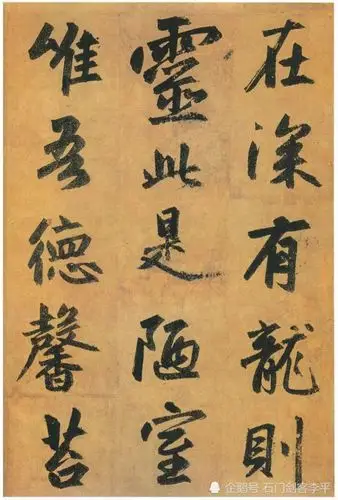 在深有龍則
靈此是陋室
唯吾德馨苔
企鹅号 石门剑客李平